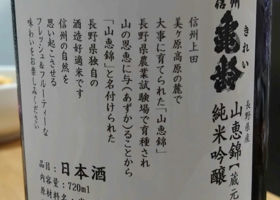 信州
亀齢
きれい
長野県産
山恵錦【蔵元
純米吟醸
信州上田
美ヶ原高原の麓で
大事に育てられた「山恵錦」
長野県農業試験場で育種され
山の恩恵に与(あずか)ることから
「山恵錦」と名付けられた
長野県独自の
酒造好適米です
信州の自然を
思い起こさせる
フレッシュ&フルーティーな
味わいをお楽しみください
品目:日本酒
内容量:720ml